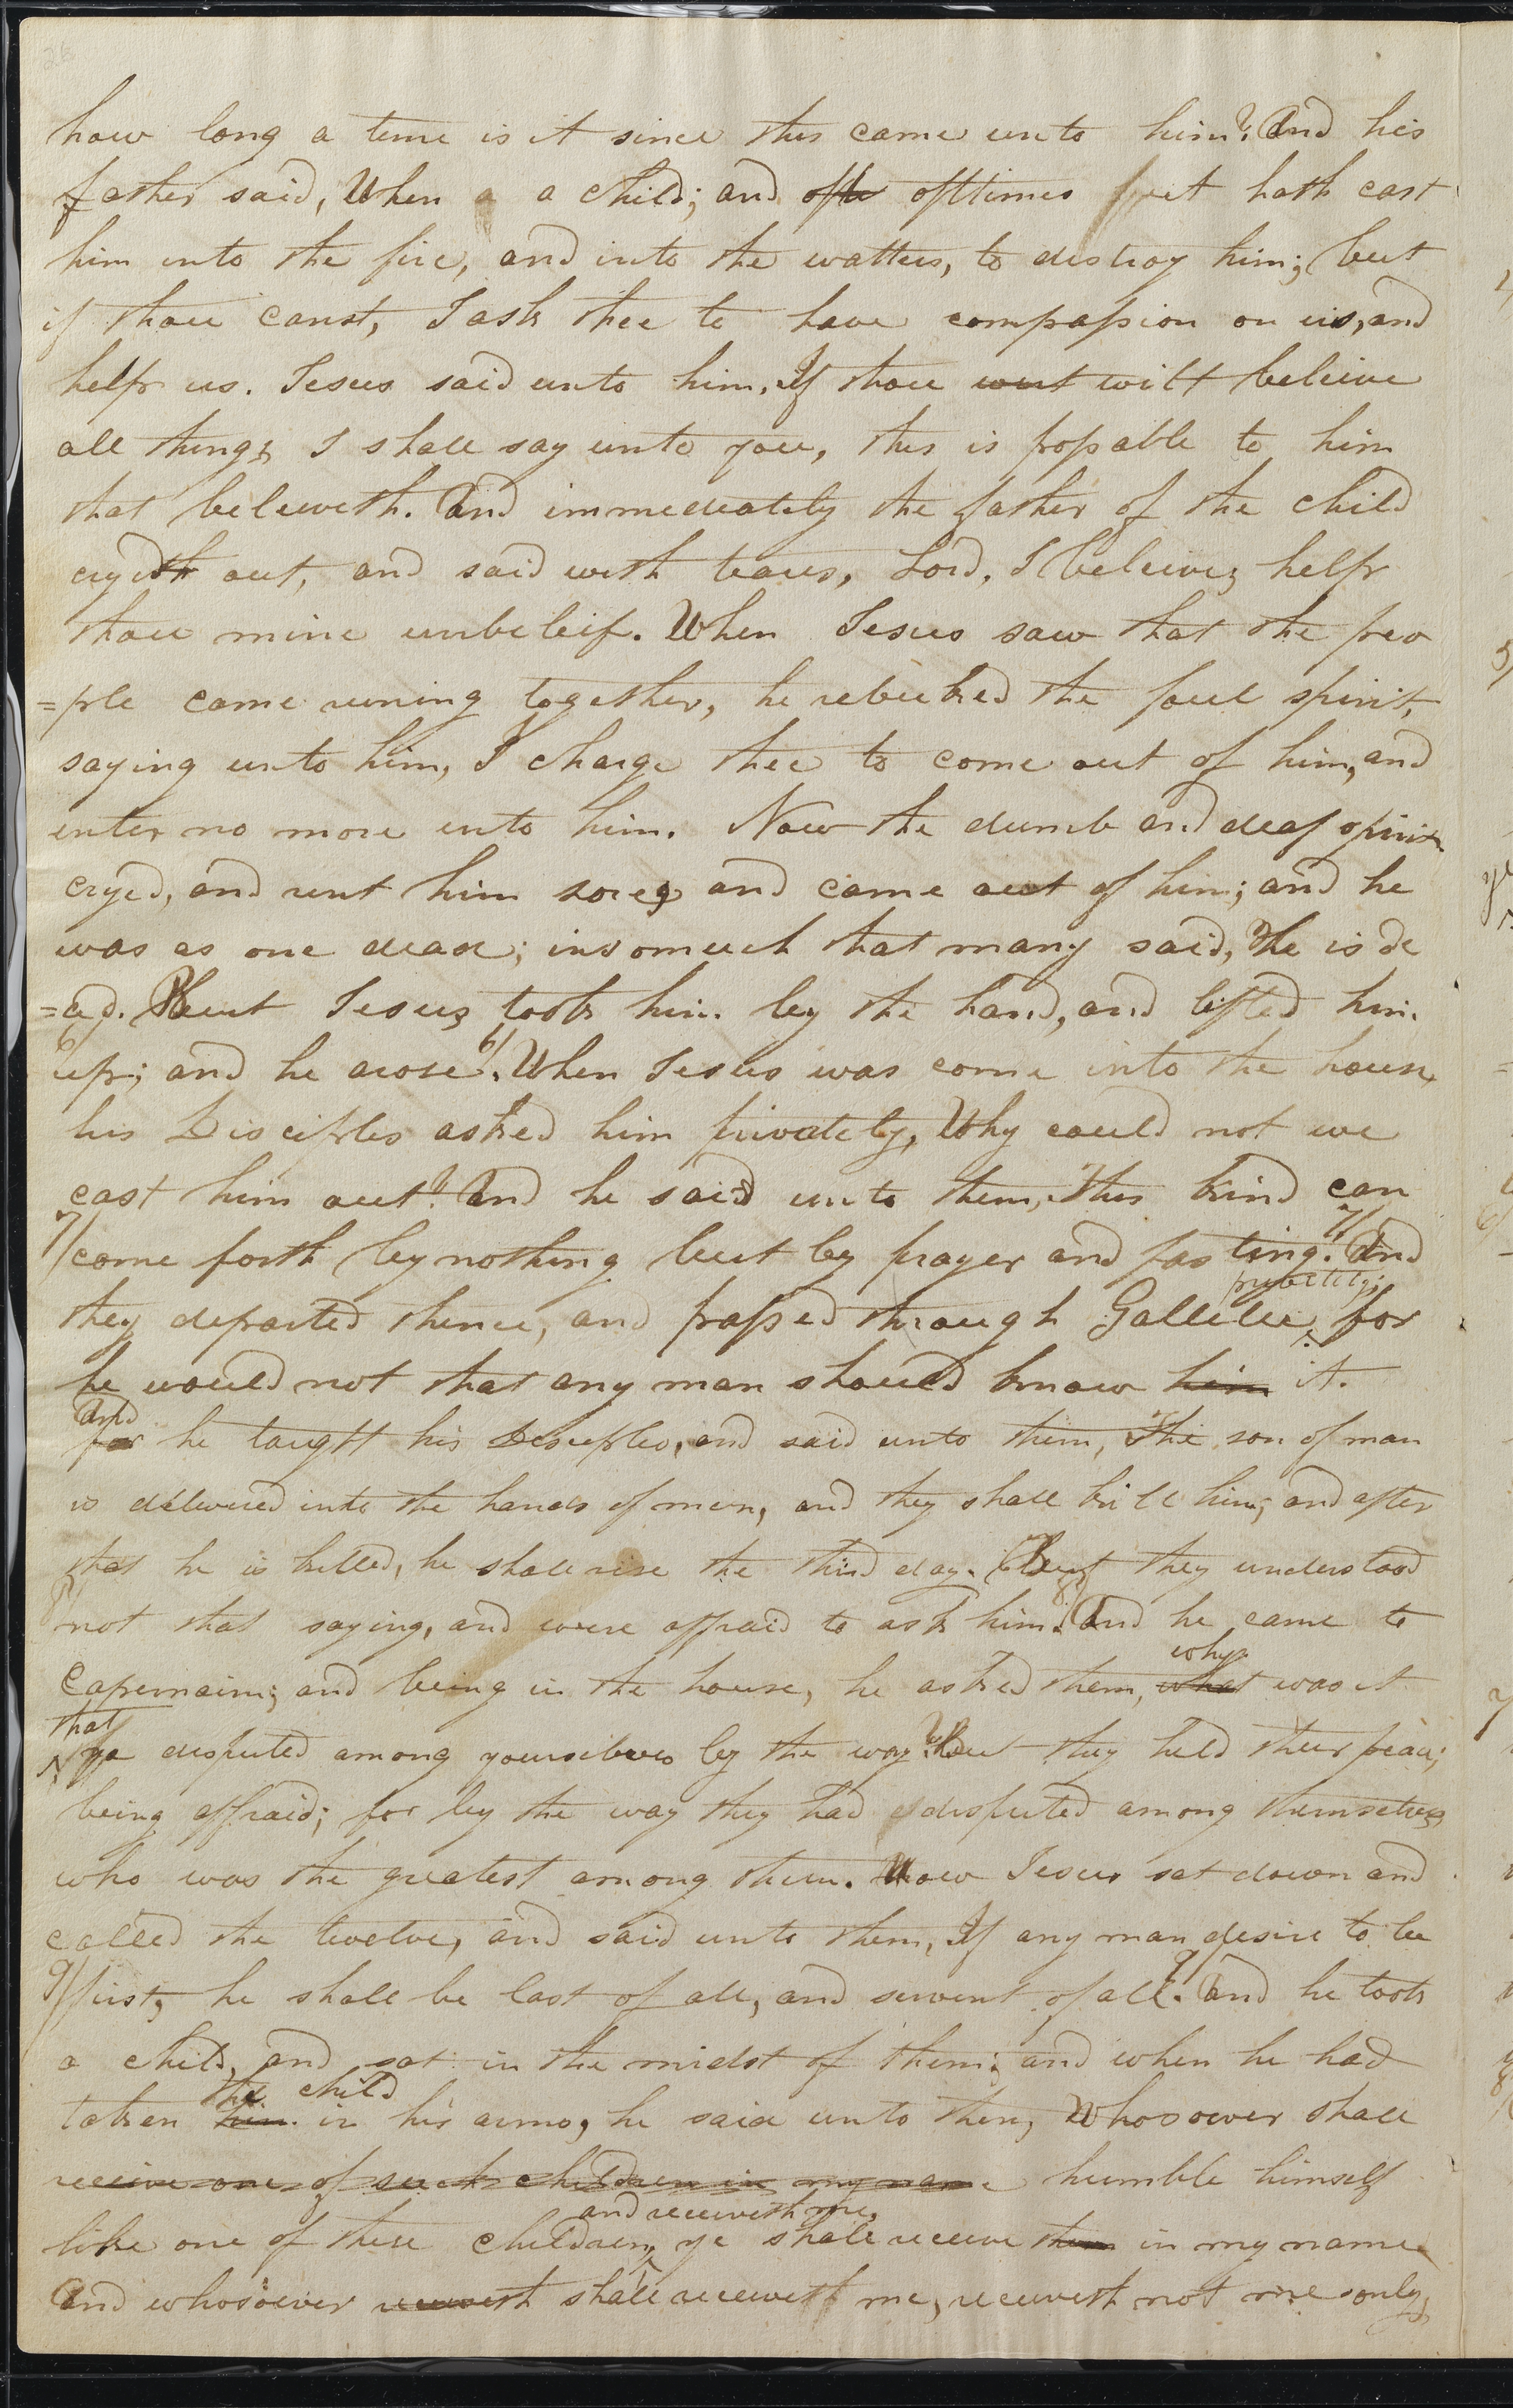 how long a time is it since this came unto him? And his
father said, When a a child; and ofte ofttimes it hath cast
him into the fire, and into the watters, to distroy him; but
if thou canst, I ask thee to have compassion on us, and
help us. Jesus said unto him, If thou wilt beleive
all things I shall say unto you, this is possable to him
that beleiveth. And immediately the father of the child
cryed out, and said with tears, Lord, I beleive; help
thou mine unbeleif. When Jesus saw that the peo
=ple came runing together, he rebuked the foul spirit,
saying unto him, I charge thee to come out of him, and
enter no more into him. Now the dumb and deaf spirit
cryed, and rent him sore, and came out of him; and he
was as one dead; insomuch that many said, He is de
=ad. But Jesus took him by the hand, and lifted him
6/ up; and he arose. 6/ When Jesus was come into the house,
his Disciples asked him privately, Why could not we
cast him out? And he said unto them, This kind can
7/ come forth by nothing but by prayer and fasting. 7/ And
they departed thence, and passed through Gallilee privetely; for
he would not that any man should know him it.
And for he taught his Desiples, and said unto them, The son of man
is delivered into the hands of men, and they shall kill him; and after
that he is killed, he shall rise the third day. But they understood
8/ not that saying, and were affraid to ask him. 8/ And he came to
Capernaim; and being in the house, he asked them, what why was it
that ye desputed among yourselves by the way? But they held their peace;
being affraid; for by the way they had desputed among themselves,
who was the greatest among them. Now Jesus sat down and
called the twelve, and said unto them, If any man desire to be
9/ first, he shall be last of all, and servent of all. 9/ And he took
a child, and sat in the midst of them; and when he had
taken him the child in his arms, he said unto them, Whosoever shall
receive one of such children in my name humble himself
like one of these children, and receiveth me, ye shall receive them in my name.
And whosoever receiveth shall receiveth me, receiveth not me only,